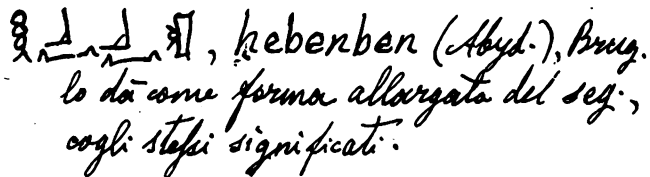 𓎛𓃀𓈖𓃀𓈖, ḥebenben (Abyd.), Brug.
lo dà come forma allargata del seg.,
cogli steſsi significati.